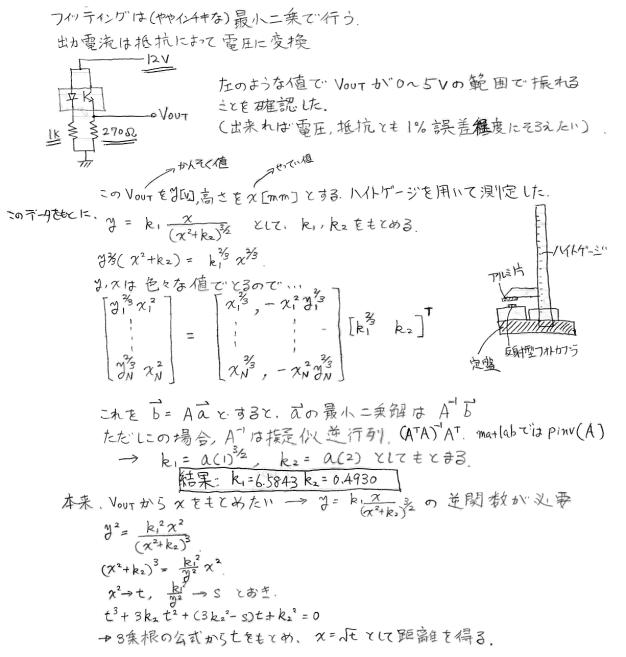 フィッティングは(ややインチキな)最小二乗で行う.
出力電流は抵抗によって電圧に変換
12V
左のような値でVOUTが0〜5Vの範囲で振れる
VOUT
ことを確認した.
1K 270Ω
(出来れば電圧,抵抗とも1%誤差程度にそろえたい).
かんそく値
このVOUTをy[V],高さをx[mm]とする.ハイトゲージを用いて測定した.
このデータをもとに、 y = k₁ x/(x²+k₂)^{3/2} として、k₁,k₂をもとめる.
y^{2/3}(x²+k₂) = k₁^{2/3} x^{2/3}
y,xは色々な値でとるので…
[y₁^{2/3} x₁² ⋮ y_N^{2/3} x_N²] = [x₁^{2/3}, -x₁² y₁^{2/3} ⋮ x_N^{2/3}, -x_N² y_N^{2/3}] [k₁^{2/3} k₂]^T
ハイトゲージ
アルミ片
反射型フォトカプラ
定盤
これを b = A a とすると、aの最小二乗解は A⁻¹ b
ただしこの場合,A⁻¹は擬似逆行列.(AᵀA)⁻¹Aᵀ. matlabではpinv(A)
→ k₁ = a(1)^{3/2}, k₂ = a(2) としてもとまる.
結果: k₁=6.5843 k₂=0.4930
本来、VOUTからxをもとめたい → y = k₁ x/(x²+k₂)^{3/2} の逆関数が必要
y² = k₁²x²/(x²+k₂)³
(x²+k₂)³ = k₁²/y² x².
x²→t, k₁²/y² → s とおき.
t³+3k₂t²+(3k₂²-s)t+k₂²=0
→3乗根の公式からtをもとめ、x=√t として距離を得る.